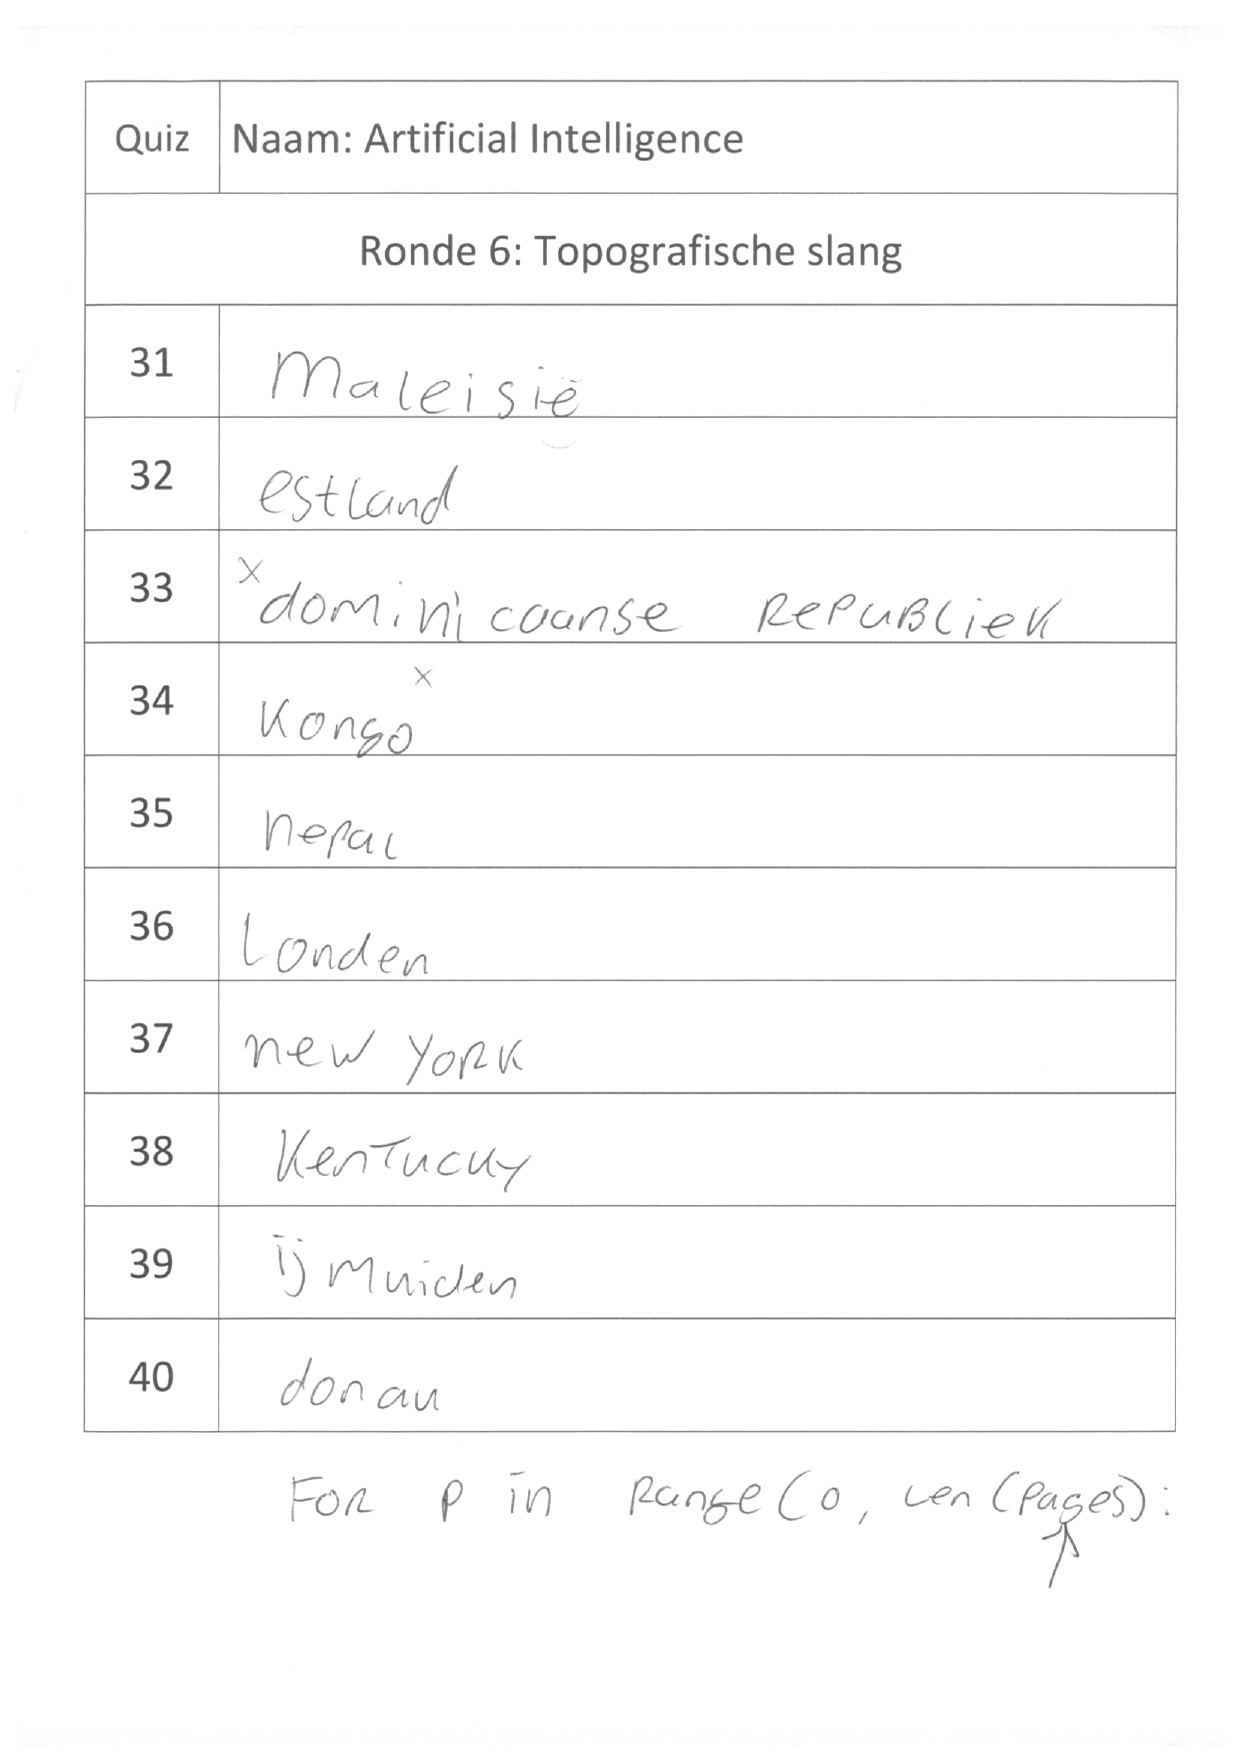 Quiz Naam: Artificial Intelligence
Ronde 6: Topografische slang
31 Maleisië
32 estland
33 x dominicaanse RePuBLieK
34 Kongo x
35 nepal
36 Londen
37 new YoRK
38 Kentucky
39 ijmuiden
40 donau
FoR p in Range(0, Len(Pages):